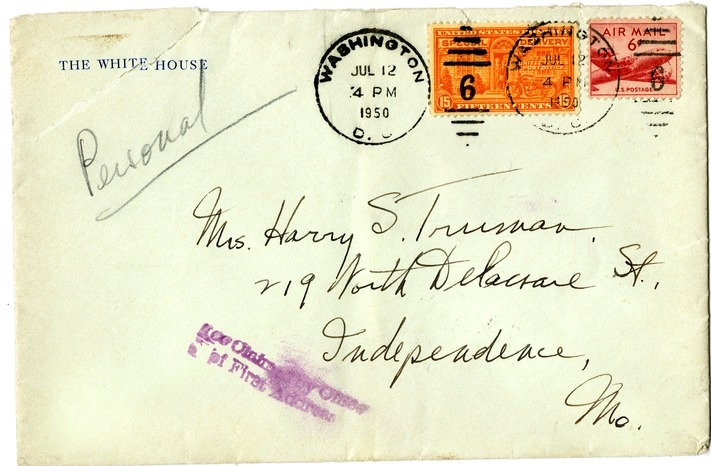 THE WHITE HOUSE
Personal
WASHINGTON
JUL 12
4 PM
1950
D. C
UNITED STATES
DELIVERY
15 FIFTEEN CENTS 15
6
WASHINGTON
JUL 12
4 PM
1950
AIR MAIL
6¢
U.S. POSTAGE
6
Mrs. Harry S. Truman.
219 North Delaware St.,
Independence,
Mo.
Office
of First Address